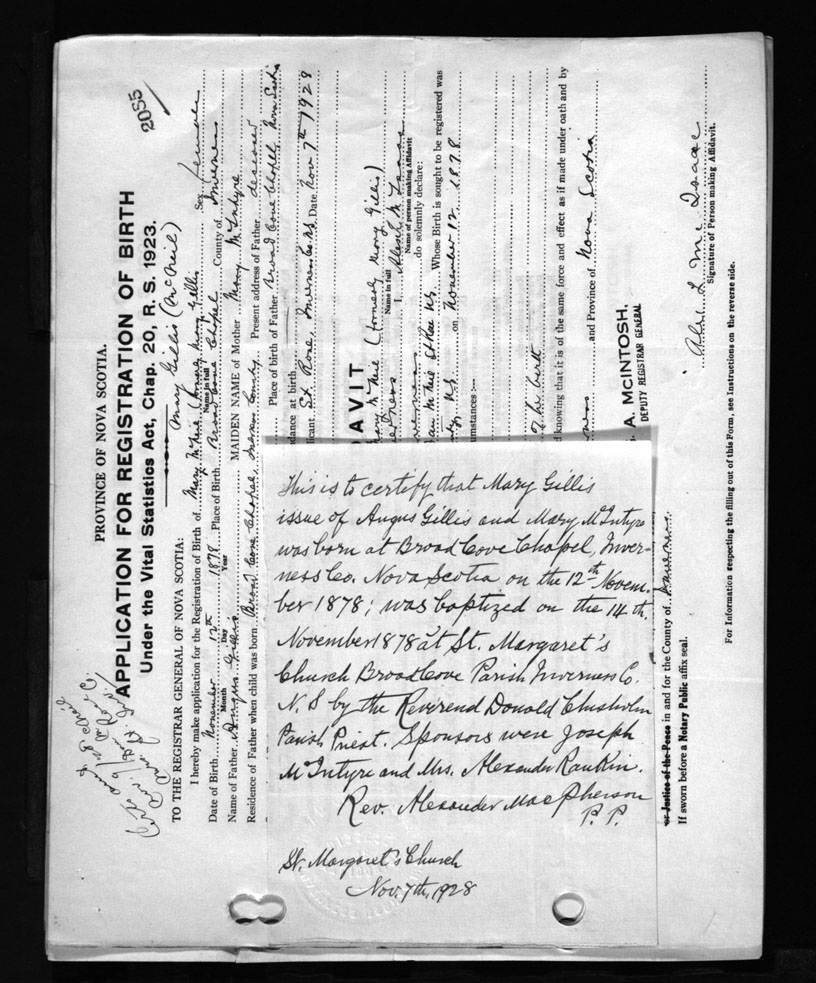 2055
PROVINCE OF NOVA SCOTIA.
APPLICATION FOR REGISTRATION OF BIRTH
Under the Vital Statistics Act, Chap. 20, R. S. 1923.
Mary Gillis (McNeil)
TO THE REGISTRAR GENERAL OF NOVA SCOTIA:
I hereby make application for the Registration of Birth of Mary McNeil (formerly Mary Gillis) Sex Female
Name in full
Date of Birth November 12th 1878 Place of Birth Broad Cove Chapel County of Inverness
Month Day Year
Name of Father Angus Gillis MAIDEN NAME of Mother Mary McIntyre
Residence of Father when child was born Broad Cove Chapel, Inverness County Present address of Father deceased
Place of birth of Father Broad Cove Chapel Nova Scotia
dance at birth
licant St. Rose, Inverness Co. N.S. Date Nov 7th 1928
DAVIT
Mary McNeil (formerly Mary Gillis)
Name in full
I,
Name of person making Affidavit
do solemnly declare:
Whose Birth is sought to be registered was
N.S. on November 12, 1878
cumstances
The birth
d knowing that it is of the same force and effect as if made under oath and by
and Province of Nova Scotia
A. McINTOSH,
DEPUTY REGISTRAR GENERAL
Mc Isaac
Signature of Person making Affidavit.
or Justice of the Peace in and for the County of
If sworn before a Notary Public affix seal.
For Information respecting the filling out of this Form, see Instructions on the reverse side.
This is to certify that Mary Gillis
issue of Angus Gillis and Mary McIntyre
was born at Broad Cove Chapel, Inver-
ness Co. Nova Scotia on the 12th Novem-
ber 1878; was baptized on the 14th
November 1878 at St. Margaret's
Church Broad Cove Parish Inverness Co.
N. S by the Reverend Donald Chisholm
Parish Priest. Sponsors were Joseph
McIntyre and Mrs. Alexander Rankin.
Rev. Alexander MacPherson
P. P.
St. Margaret's Church
Nov. 7th, 1928